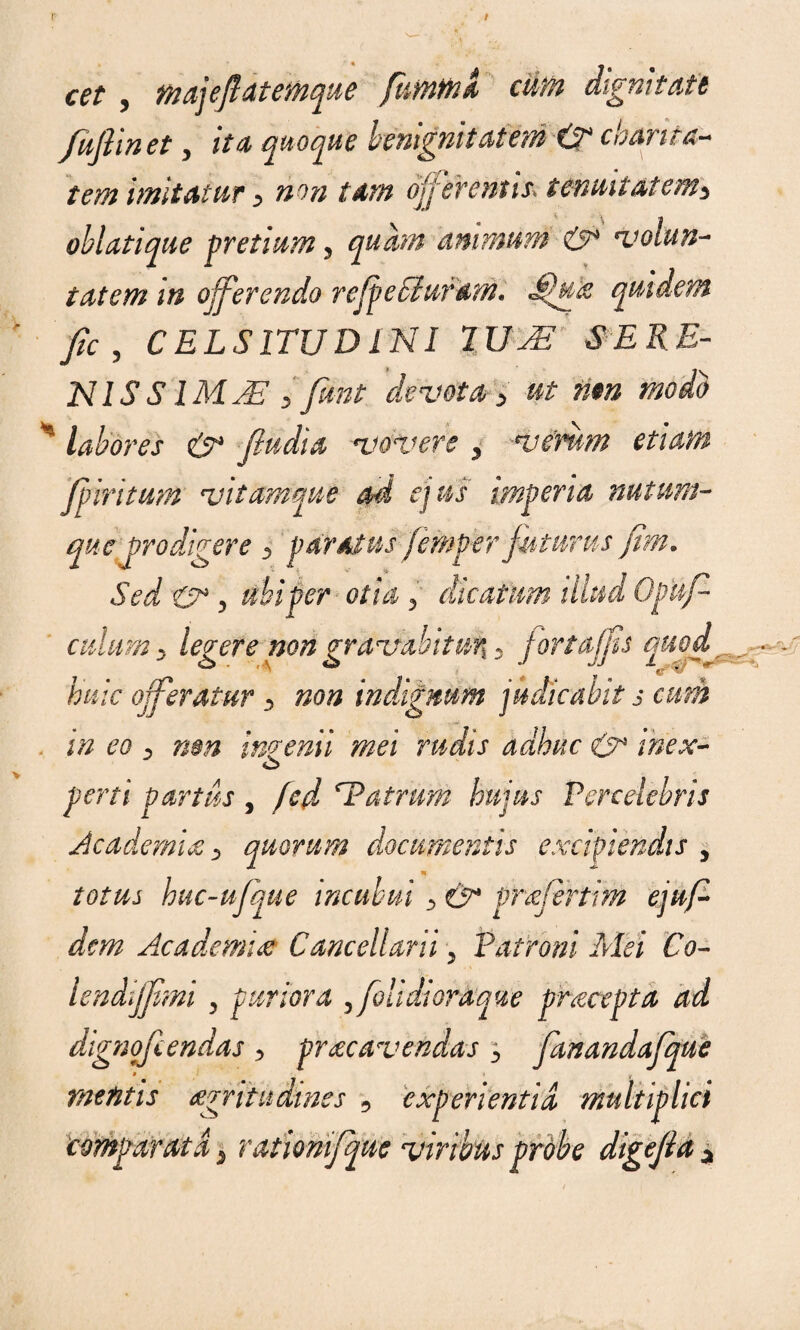 cet, majeſtatemque ſummâ cùm dignitate
ſuſtinet, ita quoque benignitatem & charita-
tem imitatur, non tam offerentis tenuitatem,
oblatique pretium, quàm animum & volun-
tatem in offerendo reſpecturam. Quæ quidem
ſic, CELSITUDINI TUÆ SERE-
NISSIMÆ, ſunt devota, ut non modò
labores & ſtudia vovere, verùm etiam
ſpiritum vitamque ad ejus imperia nutum-
que prodigere, paratus ſemper futurus ſim.
Sed &, ubi per otia, dicatum illud Opuſ-
culum, legere non gravabitur, fortaſſis quod
huic offeratur, non indignum judicabit; cum
in eo, non ingenii mei rudis adhuc & inex-
perti partûs, ſed Patrum hujus Percelebris
Academiæ, quorum documentis excipiendis,
totus huc-uſque incubui, & præſertim ejuſ-
dem Academiæ Cancellarii, Patroni Mei Co-
lendiſſimi, puriora, ſolidioraque præcepta ad
dignoſcendas, præcavendas, ſanandaſque
mentis ægritudines, experientiâ multiplici
comparatâ, rationiſque viribus probe digeſta,